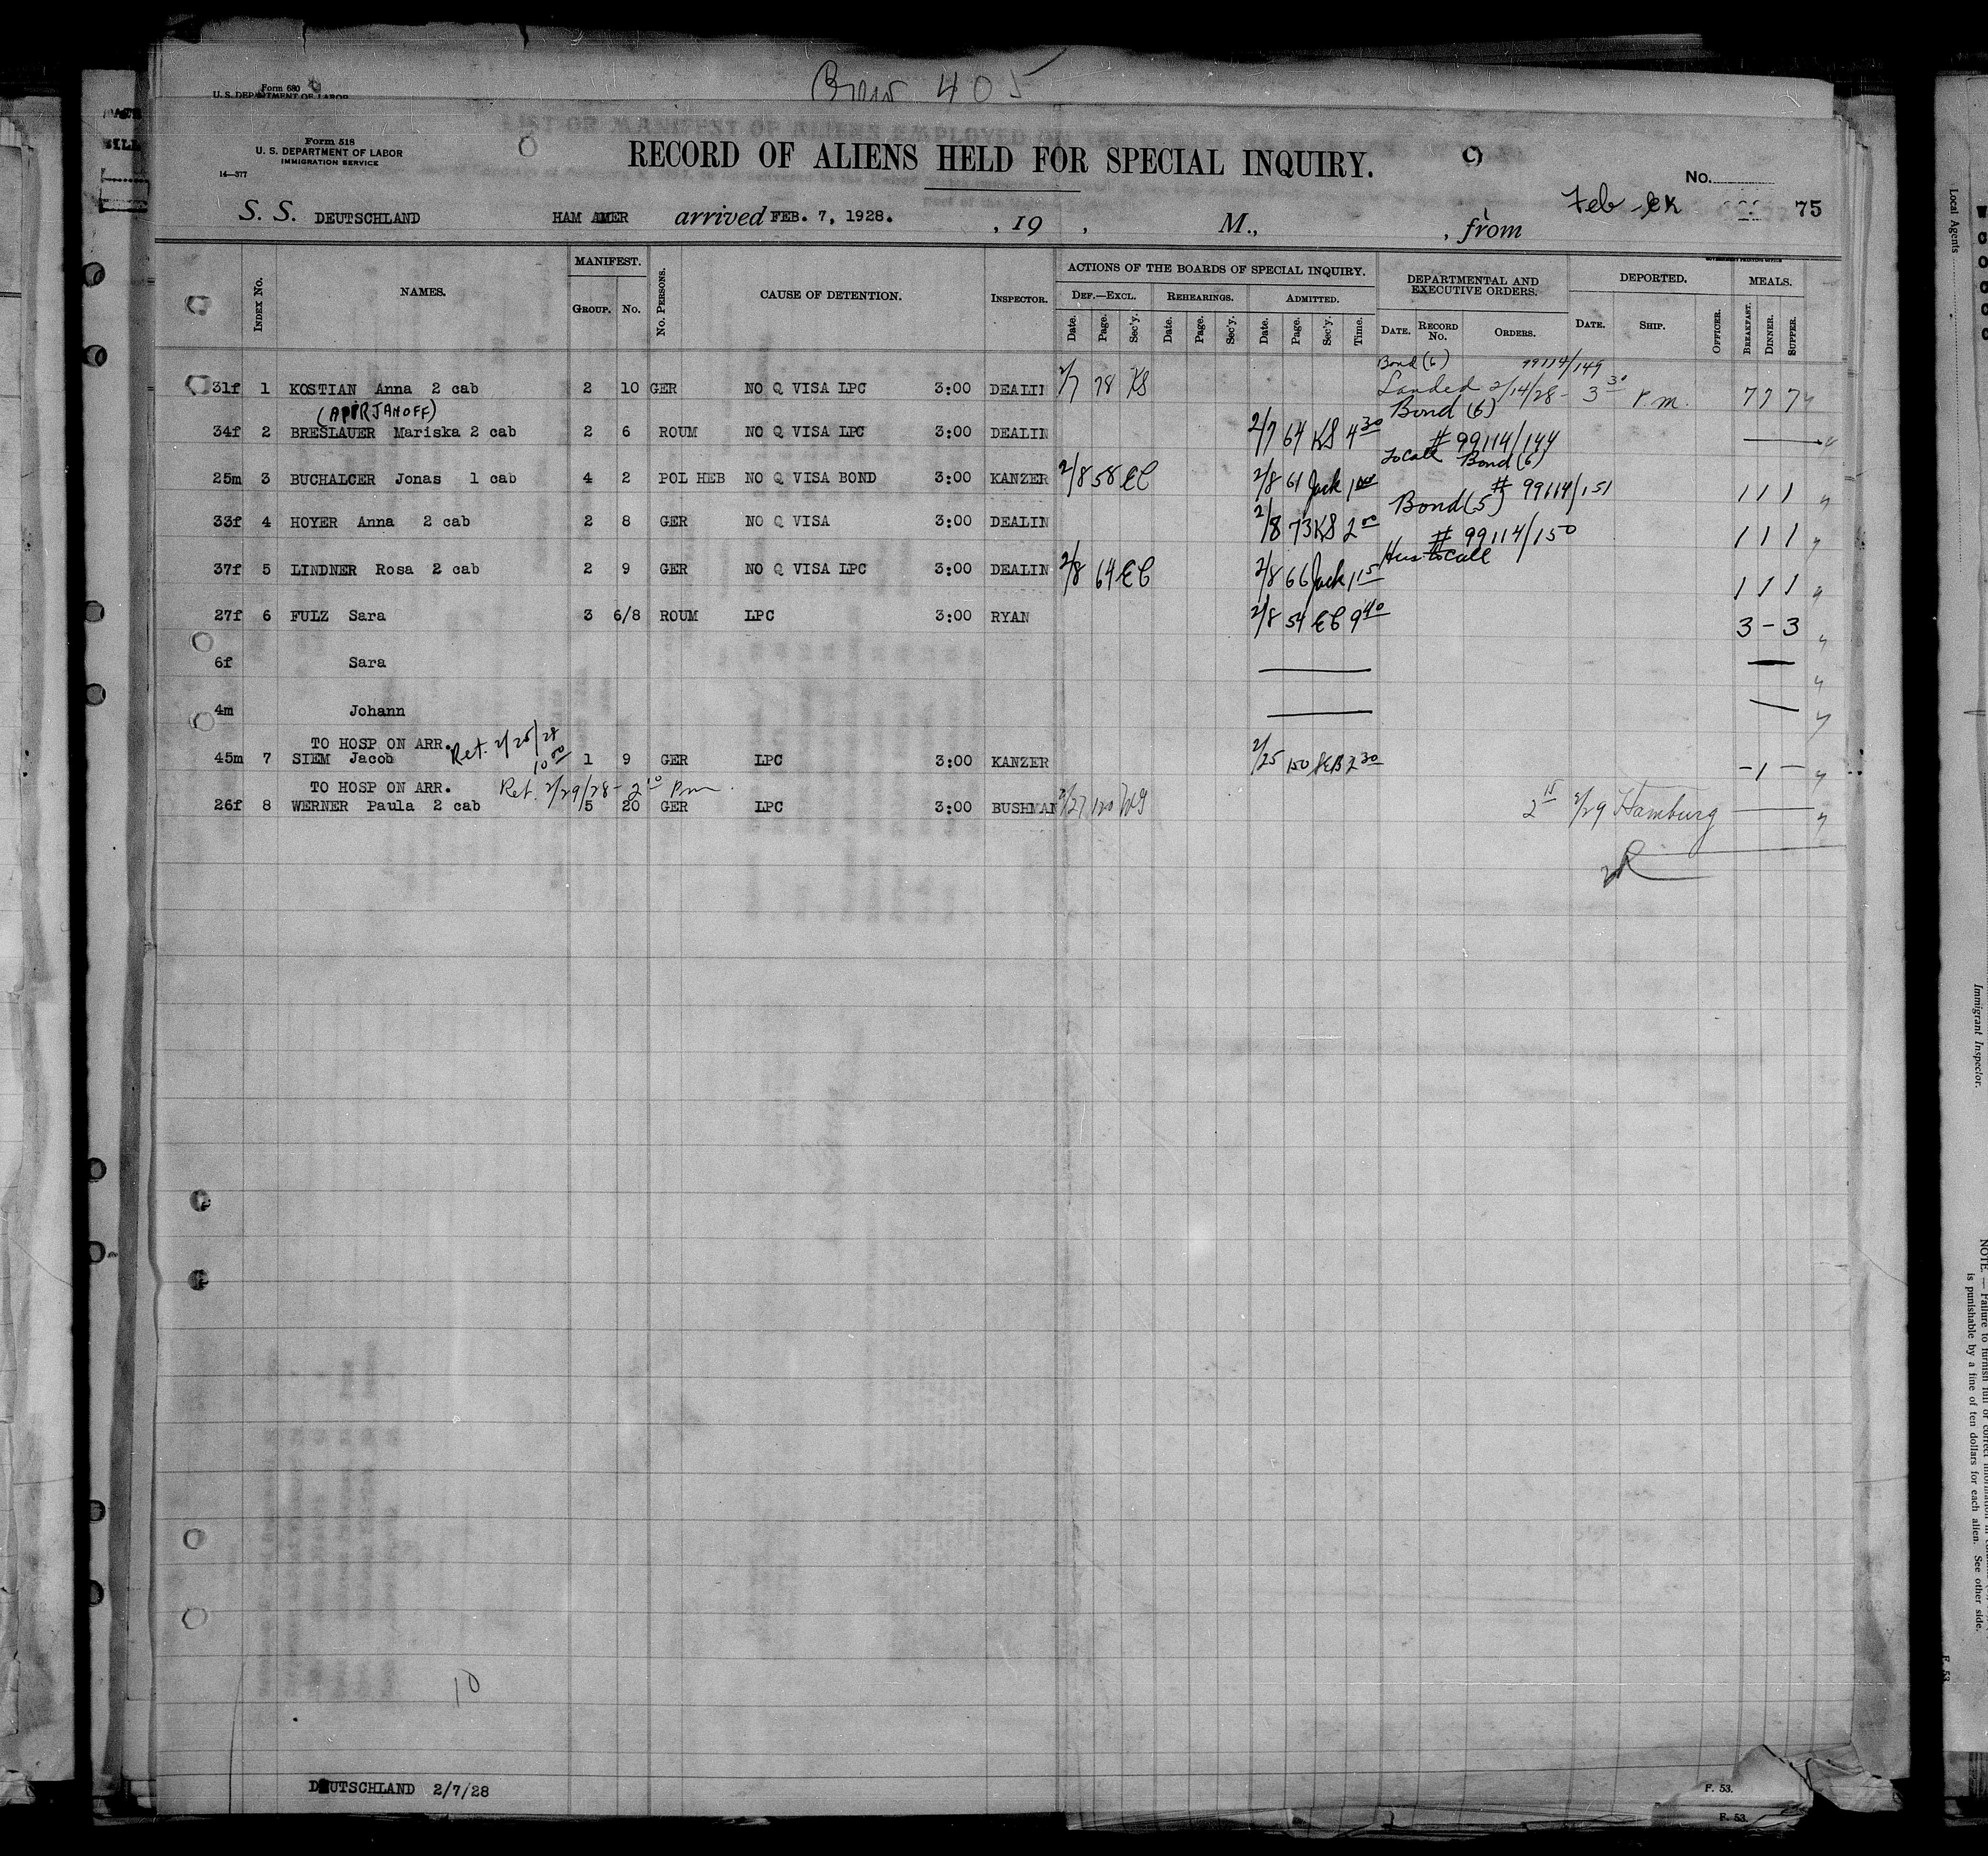 405
Form 680
U. S. DEPARTMENT OF LABOR
Form 518
U. S. DEPARTMENT OF LABOR
IMMIGRATION SERVICE
14—377
RECORD OF ALIENS HELD FOR SPECIAL INQUIRY.
9
No.
S. S. DEUTSCHLAND HAM AMER arrived FEB. 7, 1928. , 19 , M., , from
Feb 75
INDEX No. NAMES. MANIFEST. GROUP. No. No. PERSONS. CAUSE OF DETENTION. INSPECTOR. ACTIONS OF THE BOARDS OF SPECIAL INQUIRY. DEF.—EXCL. Date. Page. Sec'y. REHEARINGS. Date. Page. Sec'y. ADMITTED. Date. Page. Sec'y. Time. DEPARTMENTAL AND EXECUTIVE ORDERS. DATE. RECORD No. ORDERS. DEPORTED. DATE. SHIP. OFFICER. MEALS. BREAKFAST. DINNER. SUPPER.
Bond (6) 99114/149
31f 1 KOSTIAN Anna 2 cab 2 10 GER NO Q VISA LPC 3:00 DEALIN 2/7 78 KS Landed 2/14/28 - 3 30 P.m. 7 7 7
Bond (6)
34f 2 BRESLAUER Mariska 2 cab 2 6 ROUM NO Q VISA LPC 3:00 DEALIN 2/7 64 KS 4 30 # 99114/144
to call Bond (6)
25m 3 BUCHALCER Jonas 1 cab 4 2 POL HEB NO Q VISA BOND 3:00 KANZER 2/8 58 EC 2/8 61 Jack 1 00 # 99114/151 1 1 1
Bond (5)
33f 4 HOYER Anna 2 cab 2 8 GER NO Q VISA 3:00 DEALIN 2/8 73 KS 2 00 # 99114/150 1 1 1
Hus to call
37f 5 LINDNER Rosa 2 cab 2 9 GER NO Q VISA LPC 3:00 DEALIN 2/8 64 EC 2/8 66 Jack 1 15 1 1 1
27f 6 FULZ Sara 3 6/8 ROUM LPC 3:00 RYAN 2/8 54 EC 9 40 3 - 3
6f Sara
4m Johann
TO HOSP ON ARR. Ret. 2/25/28 10 00
45m 7 SIEM Jacob 1 9 GER LPC 3:00 KANZER 2/25 150 2 30 - 1 -
TO HOSP ON ARR. Ret. 2/29/28 - 2 10 Pm
26f 8 WERNER Paula 2 cab 5 20 GER LPC 3:00 BUSHMAN 2/27 120 2 15 2/29 Hamburg
10
DEUTSCHLAND 2/7/28
F. 53.
F. 53.
Local Agents
Immigrant Inspector.
is punishable by a fine of ten dollars for each alien. See other side.
F. 53